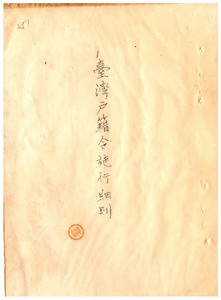 臺灣戶籍令施行細則